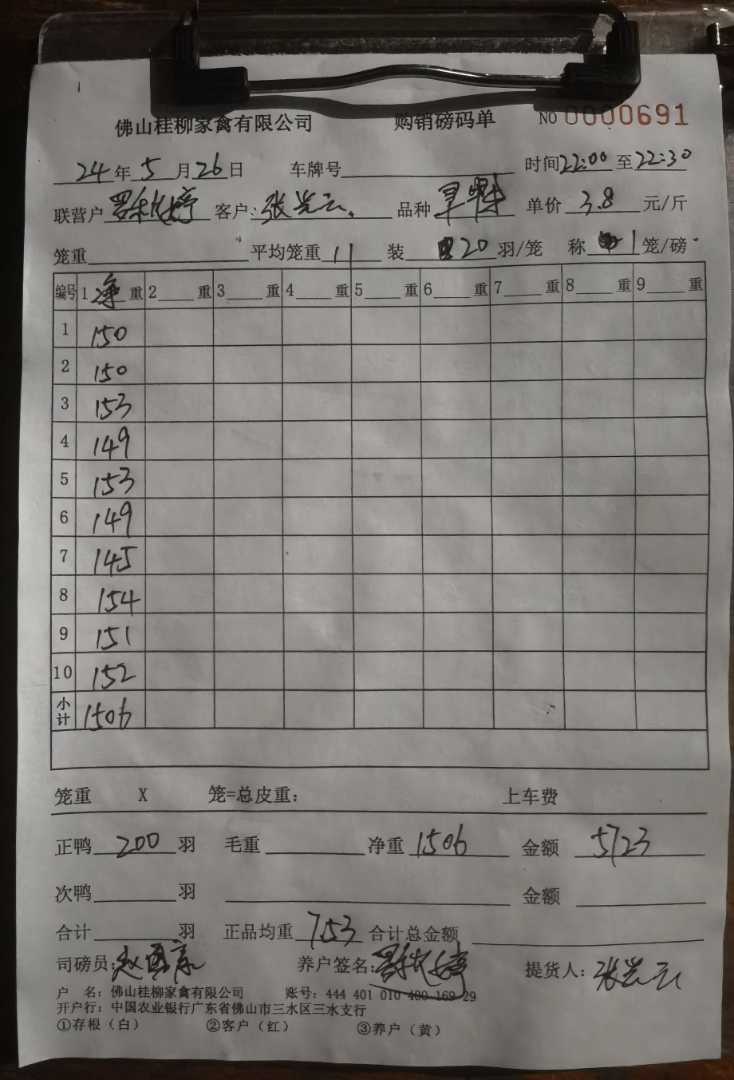 佛山桂柳家禽有限公司 购销磅码单 NO 0000691
24年5月26日 车牌号 时间22:00至22:30
联营户 客户: 张 云 品种 单价 3.8 元/斤
笼重 平均笼重 11 装 20 羽/笼 称 1 笼/磅
编号 1 净 重 2 重 3 重 4 重 5 重 6 重 7 重 8 重 9 重
1 150
2 150
3 153
4 149
5 153
6 149
7 145
8 154
9 151
10 152
小计 1506
笼重 X 笼=总皮重: 上车费
正鸭 200 羽 毛重 净重 1506 金额 5723
次鸭 羽 金额
合计 羽 正品均重 7.53 合计总金额
司磅员: 赵 养户签名: 提货人: 张 云
户 名: 佛山桂柳家禽有限公司 账号: 444 401 010 400 169 29
开户行: 中国农业银行广东省佛山市三水区三水支行
①存根(白) ②客户(红) ③养户(黄)